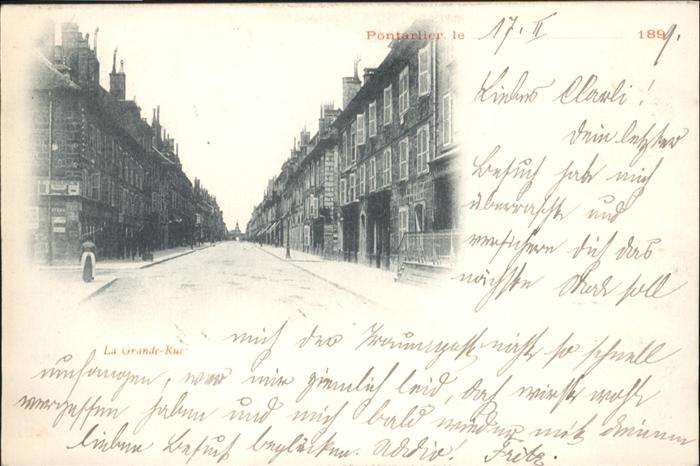 Pontarlier, le 17. II 1899.
Liebes Clarli!
Dein letzter
Besuch hat mich
überrascht und
versichere dich das
nächste Mal soll
La Grande-Rue
mich der so schnell
umfangen, war mir ziemlich leid, das wirst wohl
vergessen haben und mich bald wieder mit deinem
lieben Besuch beglücken. Addio! Fritz.